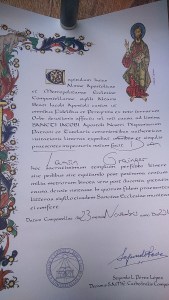 Capitulum huius
Almae Apostolicae
et Metropolitanae Ecclesiae
Compostellanae sigilli Altaris
Beati Iacobi Apostoli custos, ut
omnibus Fidelibus et Peregrinis ex toto terrarum
Orbe, devotionis affectu vel voti causa, ad limina
SANCTI IACOBI, Apostoli Nostri, Hispaniarum
Patroni et Tutelaris convenientibus, authenticas
visitationis litteras expediat, omnibus et singulis
praesentes inspecturis, notum facit
hoc sacratissimum templum, perfecto itinere
sive pedibus sive equitando post postrema centum
milia metrorum, birota vero post ducenta, pietatis
causa, devote visitasse. In quorum fidem praesentes
litteras, sigillo eiusdem Sanctae Ecclesiae munitas,
ei confero.
Datum Compostellae die 23 mensis
Segundo L. Pérez López
Decanus S.A.M.E. Cathedralis Compostellanae